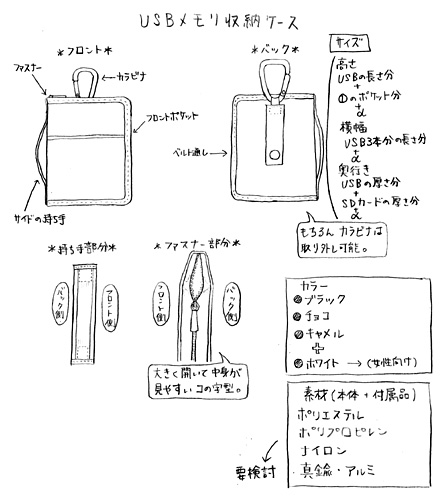 USBメモリ収納ケース
*フロント*
ファスナー
カラビナ
フロントポケット
サイドの持ち手
*バック*
ベルト通し
サイズ
高さ
USBの長さ分
+
①のポケット分
+
α
横幅
USB3本分の長さ分
+
α
奥行き
USBの厚さ分
+
SDカードの厚さ分
+
α
もちろん カラビナは
取り外し可能。
*持ち手部分*
バック側
フロント側
*ファスナー部分*
フロント側
バック側
大きく開いて中身が
見やすいコの字型。
カラー
ブラック
チョコ
キャメル
+
ホワイト → (女性向け)
素材(本体+付属品)
ポリエステル
ポリプロピレン
ナイロン
真鍮・アルミ
要検討